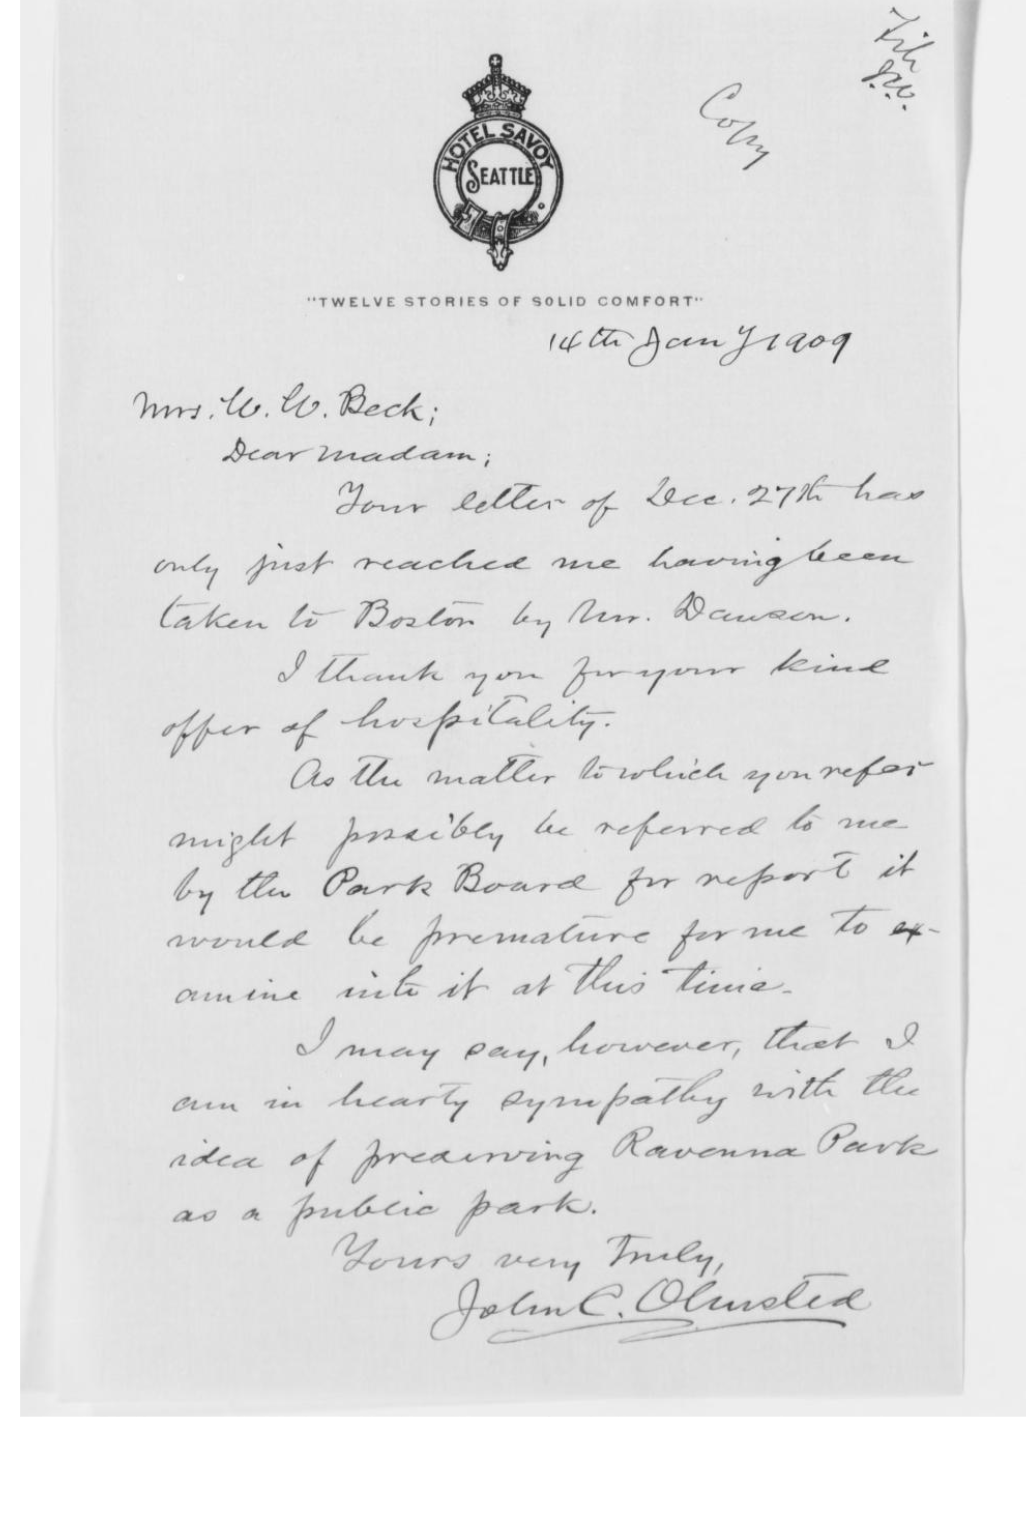 File
J.W.
Copy
HOTEL SAVOY
SEATTLE
"TWELVE STORIES OF SOLID COMFORT"
14th Jan'y 1909
Mrs. W. W. Beck;
Dear Madam;
Your letter of Dec. 27th has
only just reached me having been
taken to Boston by Mr. Dawson.
I thank you for your kind
offer of hospitality.
As the matter to which you refer
might possibly be referred to me
by the Park Board for report it
would be premature for me to ex-
amine into it at this time.
I may say, however, that I
am in hearty sympathy with the
idea of preserving Ravenna Park
as a public park.
Yours very truly,
John C. Olmsted